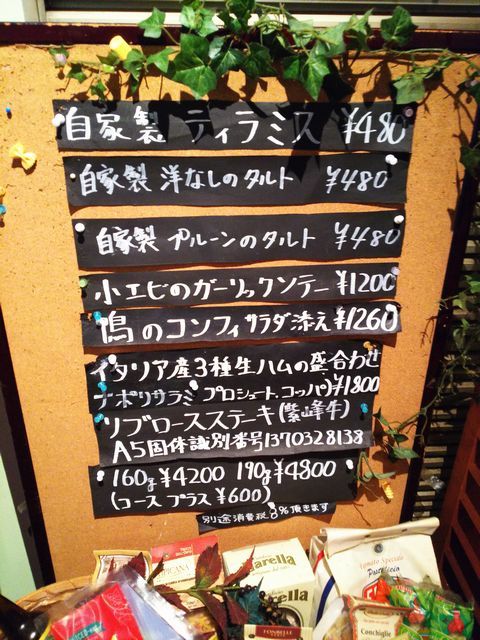 自家製 ティラミス ¥480
自家製 洋なしのタルト ¥480
自家製 プルーンのタルト ¥480
小エビのガーリックソテー ¥1200
鴨のコンフィサラダ添え¥1260
イタリア産3種生ハムの盛合わせ
ナポリサラミ プロシュート.コッパ)¥1800
リブロースステーキ(紫峰牛)
A5固体識別番号1370328138
160g¥4200 190g¥4800
(コース プラス ¥600)
別途消費税8%頂きます
arella
Tomato Speciale
Conchiglie